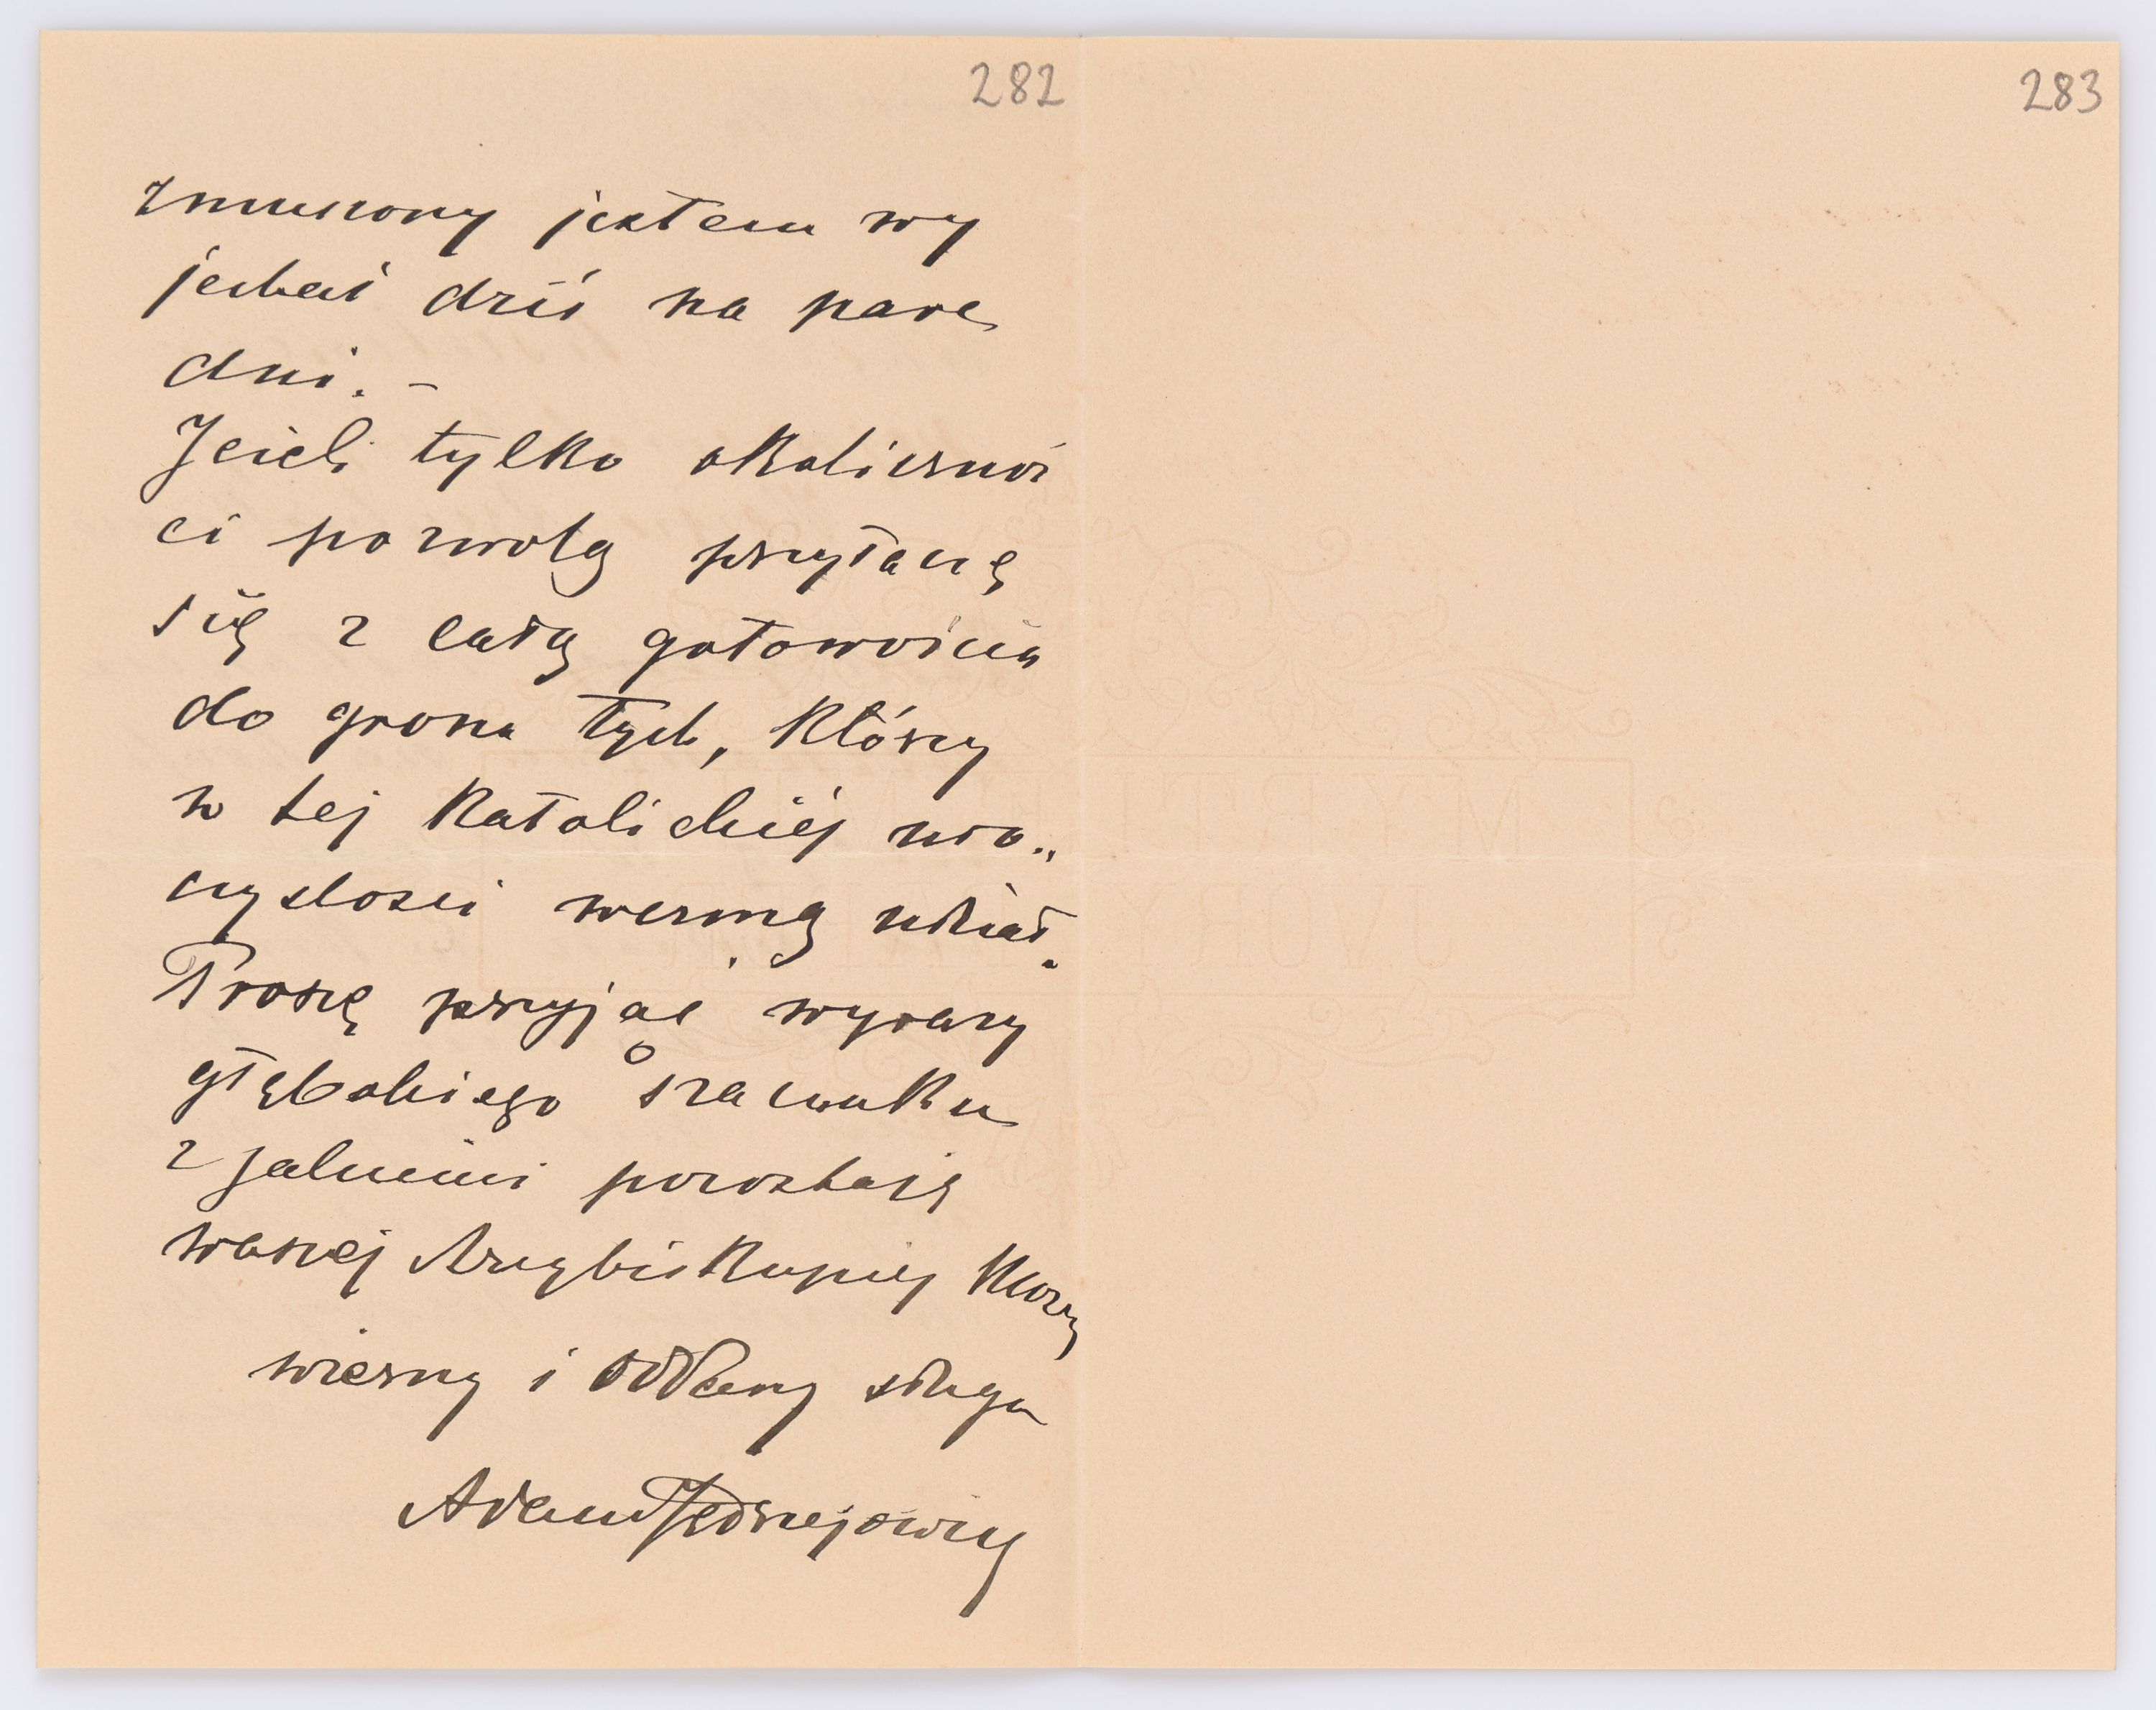 282
283
zmuszony jestem wy
jechać dziś na parę
dni. –
Jeżeli tylko okolicznoś
ci pozwolą przyłączę
się z całą gotowością
do grona tych, którzy
w tej katolickiéj uro„
czystości wezmą udział.
Proszę przyjąć wyrazy
głębokiego szacunku
z jakiemi pozostaję
waszej Arcybiskupiej Mości
wierny i oddany sługa
Adam Jędrzejowicz